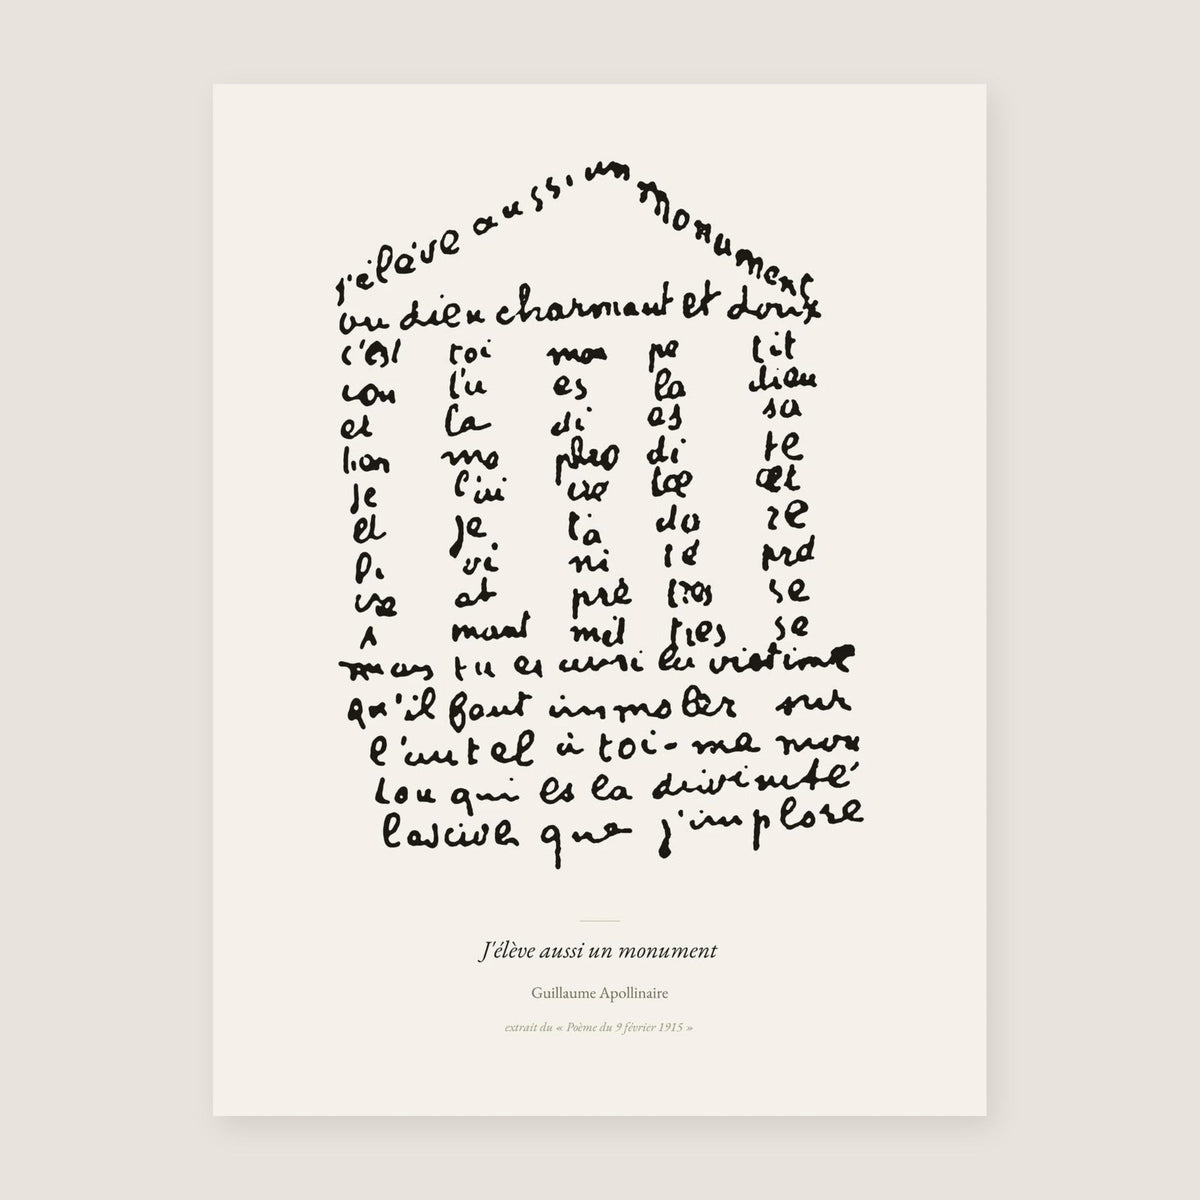 J'élève aussi un monument
au dieu charmant et doux
c'est toi mon pe tit
Lou tu es la dieu
et la di es sa
ma phro di te
Je l'in
et je t'a do re
Di vi ni té
at prê tres se
A mant tres se
mais tu es aussi la victime
qu'il faut immoler sur
l'autel à toi-même mon
Lou qui es la divinité
lascive que j'implore
J'élève aussi un monument
Guillaume Apollinaire
extrait du « Poème du 9 février 1915 »